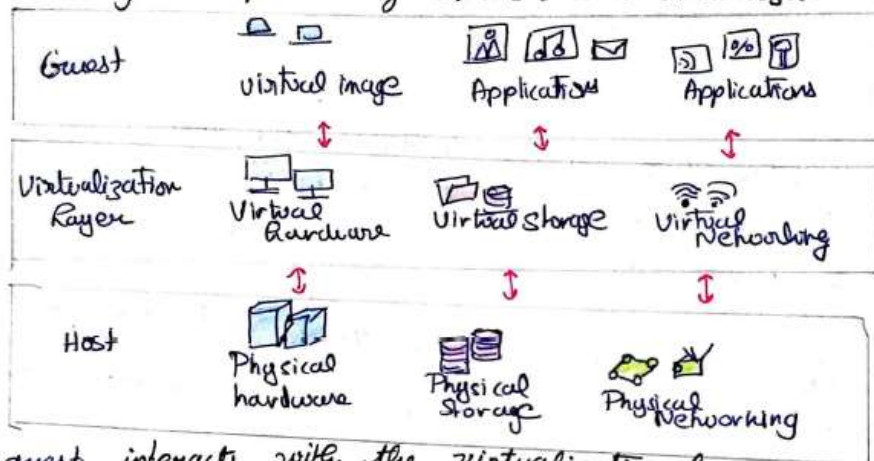 Guest
Virtual image
Applications
Applications
Virtualization
Layer
Virtual
Hardware
Virtual Storage
Virtual
Networking
Host
Physical
hardware
Physical
Storage
Physical
Networking
guest interacts with the